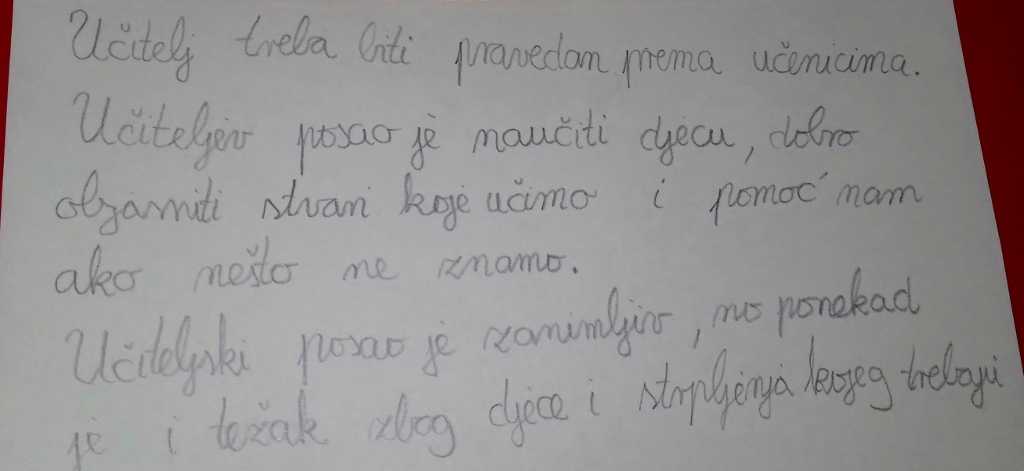 Učitelj treba biti pravedan prema učenicima.
Učiteljev posao je naučiti djecu, dobro
objasniti stvari koje učimo i pomoć nam
ako nešto ne znamo.
Učiteljski posao je zanimljiv, no ponekad
je i težak zbog djece i strpljenja kojeg trebaju